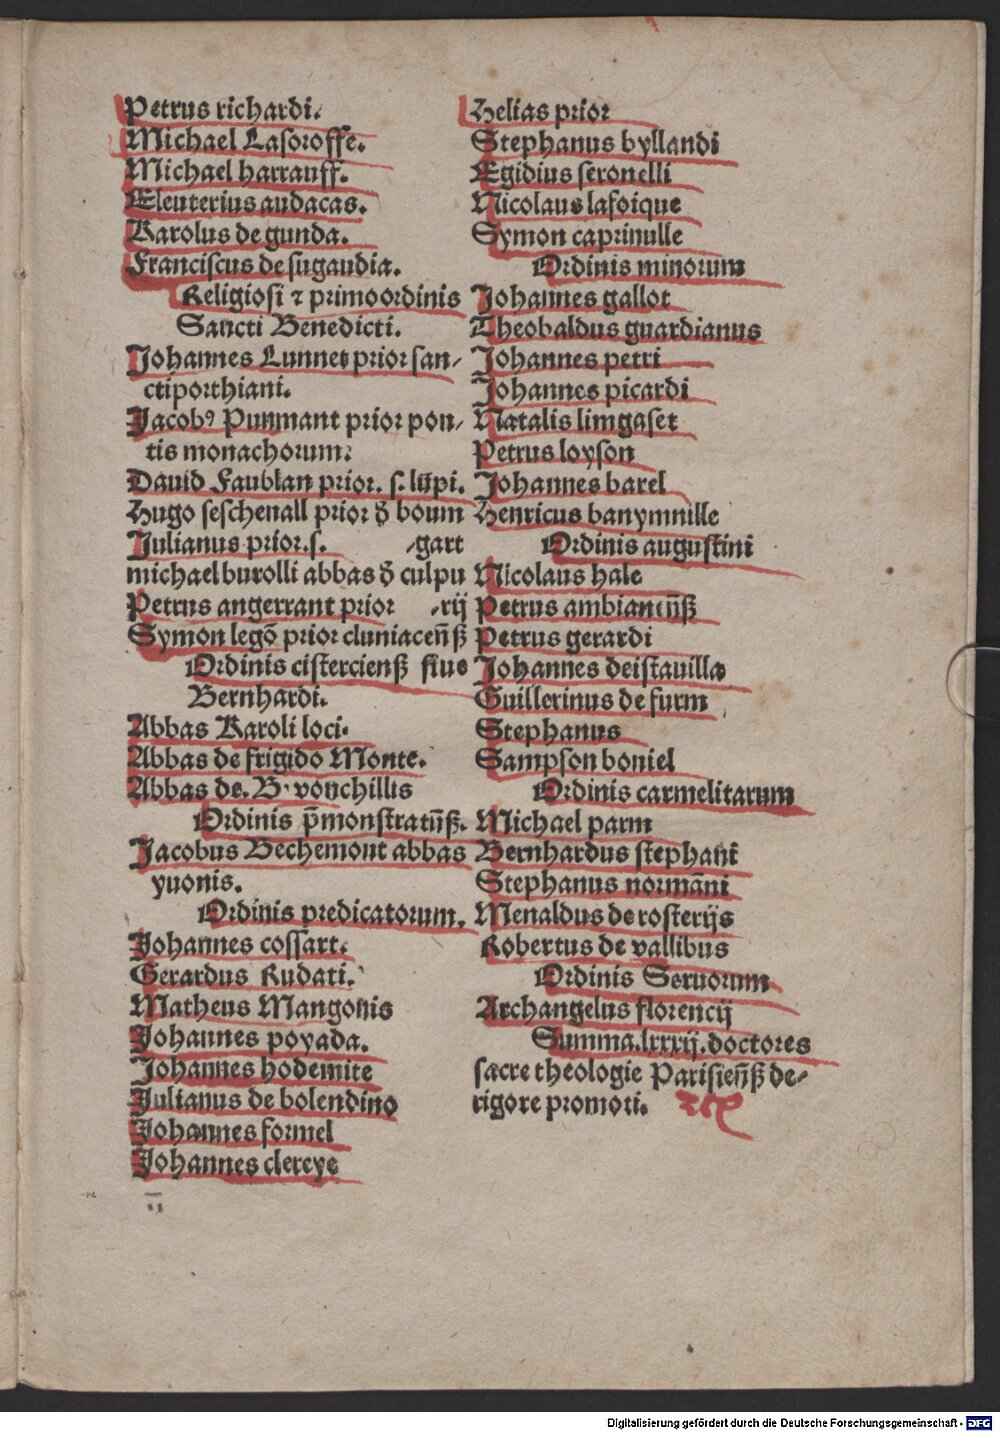 Petrus richardi.
Michael Lasoroffe.
Michael harrauff.
Eleuterius audacas.
Karolus de gunda.
Franciscus de sugaudia.
Religiosi ⁊ primo ordinis
Sancti Benedicti.
Johannes Lunnet prior san-
ctiporthiani.
Jacobꝰ Punmant prior pon-
tis monachorum:
Dauid Faublan prior. s. lūpi.
Hugo seschenall prior d̄ boum
Julianus prior. s. -gart
michael burolli abbas d̄ culpu
Petrus angerrant prior -rij
Symon legō prior cluniacen̄ß
Ordinis cistercienß siue
Bernhardi.
Abbas Karoli loci.
Abbas de frigido Monte.
Abbas de. B. vonchillis
Ordinis p̄monstratn̄ß.
Jacobus Bechemont abbas
yuonis.
Ordinis predicatorum.
Johannes cossart.
Gerardus Rudati.
Matheus Mangonis
Johannes poyada.
Johannes hodemite
Julianus de bolendino
Johannes formel
Johannes clercye
Helias prior
Stephanus byllandi
Egidius seronelli
Nicolaus lafoique
Symon caprinulle
Ordinis minorum
Johannes gallot
Theobaldus guardianus
Johannes petri
Johannes picardi
Natalis limgaset
Petrus loyson
Johannes barel
Henricus banymnille
Ordinis augustini
Nicolaus hale
Petrus ambianen̄ß
Petrus gerardi
Johannes deistauilla
Guillerinus de furm
Stephanus
Sampson boniel
Ordinis carmelitarum
Michael parm
Bernhardus stephani
Stephanus normāni
Menaldus de rosterijs
Robertus de vallibus
Ordinis Seruorum
Archangelus florencij
Summa.lxxxij.doctores
sacre theologie Parisien̄ß de-
rigore promoti.
Digitalisierung gefördert durch die Deutsche Forschungsgemeinschaft - DFG